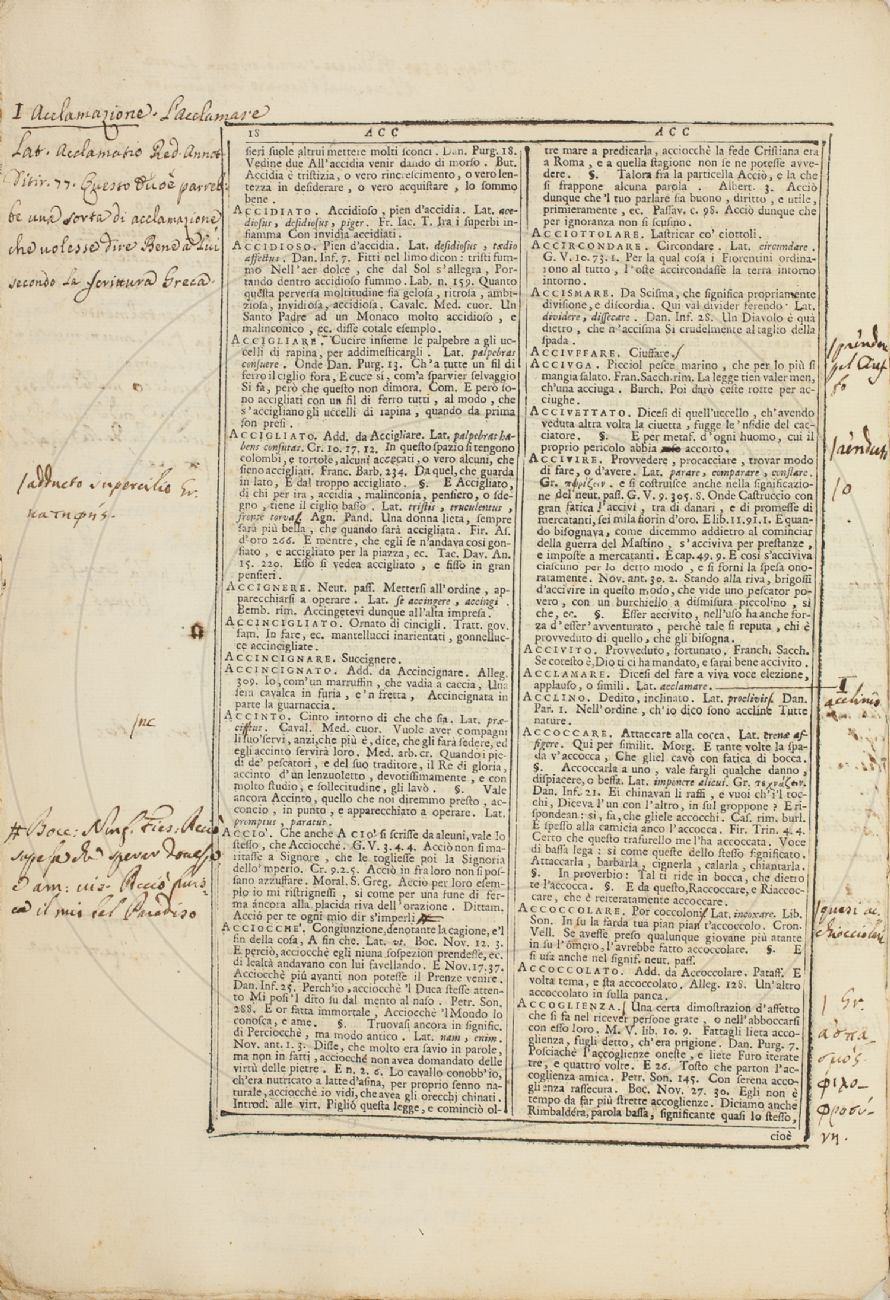 I Acclamazione. L'acclamare
Lat. Acclamatio Red. Annot.
Ditir. 77. Questo Evoè parreb
be una sorta di acclamazione
che volesse dire Bene a Lui
secondo la scrittura Greca.
/adducto supercilio Gr.
κατηφής.
/nc
# Bocc: Ninf. Fies: Acciò
18 ACC
sieri suole altrui mettere molti sconci. Dan. Purg. 18.
Vedine due All'accidia venir dando di morso. But.
Accidia è tristizia, o vero rincrescimento, o vero len-
tezza in desiderare, o vero acquistare, lo sommo
bene.
ACCIDIATO. Accidioso, pien d'accidia. Lat. acce-
diosus, desidiosus, piger. Fr. Iac. T. Ira i superbi in-
fiamma Con invidia accidiati.
ACCIDIOSO. Pien d'accidia. Lat. desidiosus, tædio
affectus. Dan. Inf. 7. Fitti nel limo dicon: tristi fum-
mo Nell'aer dolce, che dal Sol s'allegra, Por-
tando dentro accidioso fummo. Lab. n. 159. Quanto
questa perversa moltitudine sia gelosa, ritrosa, ambi-
ziosa, invidiosa, accidiosa. Cavalc. Med. cuor. Un
Santo Padre ad un Monaco molto accidioso, e
malinconico, ec. disse cotale esemplo.
ACCIGLIARE. Cucire insieme le palpebre a gli uc-
celli di rapina, per addimesticargli. Lat. palpebras
consuere. Onde Dan. Purg. 13. Ch'a tutte un'fil di
ferro il ciglio fora, E cuce sì, com'a sparvier selvaggio
Si fa, però che questo non dimora. Com. E però so-
no accigliati con un fil di ferro tutti, al modo, che
s'accigliano gli uccelli di rapina, quando da prima
son presi.
ACCIGLIATO. Add. da Accigliare. Lat. palpebras ha-
bens consutas. Cr. 10. 17. 12. In questo spazio si tengono
colombi, e tortole, alcuni accecati, o vero alcuni, che
sieno accigliati. Franc. Barb. 234. Da quel, che guarda
in lato, E dal troppo accigliato. §. E Accigliato,
di chi per ira, accidia, malinconia, pensiero, o sde-
gno, tiene il ciglio basso. Lat. tristis, truculentus,
fronte torva. Agn. Pand. Una donna lieta, sempre
sarà più bella, che quando sarà accigliata. Fir. As.
d'oro 266. E mentre, che egli se n'andava così gon-
fiato, e accigliato per la piazza, ec. Tac. Dav. An.
15. 220. Esso si vedea accigliato, e fisso in gran
pensieri.
ACCIGNERE. Neut. pass. Mettersi all'ordine, ap-
parecchiarsi a operare. Lat. se accingere, accingi.
Bemb. rim. Accingetevi dunque all'alta impresa.
ACCINCIGLIATO. Ornato di cincigli. Tratt. gov.
fam. In fare, ec. mantellucci inarientati, gonnelluc-
ce accincigliate.
ACCINCIGNARE. Succignere.
ACCINCIGNATO. Add. da Accincignare. Alleg.
309. Io, com'un marruffin, che vadia a caccia, Una
sera cavalca in furia, e 'n fretta, Accincignata in
parte la guarnaccia.
ACCINTO. Cinto intorno di che che sia. Lat. præ-
cinctus. Caval. Med. cuor. Vuole aver compagni
li suo'servi, anzi, che più è, dice, che gli farà sedere, ed
egli accinto servirà loro. Med. arb. cr. Quando i pie-
di de' pescatori, e del suo traditore, il Re di gloria,
accinto d'un lenzuoletto, devotissimamente, e con
molto studio, e sollecitudine, gli lavò. §. Vale
ancora Accinto, quello che noi diremmo presto, ac-
concio, in punto, e apparecchiato a operare. Lat.
promptus, paratus.
ACCIO'. Che anche A CIO' si scrisse da alcuni, vale lo
stesso, che Acciocchè. G. V. 3. 4. 4. Acciò non si ma-
ritasse a Signore, che le togliesse poi la Signoria
dello'mperio. Cr. 9. 2. 5. Acciò in fra loro non si pos-
sano azzuffare. Moral. S. Greg. Acciò per loro esem-
plo io mi ristrignessi, sì come per una fune di fer-
ma áncora alla placida riva dell'orazione. Dittam.
Acciò per te ogni mio dir s'imperli
ACCIOCCHE'. Congiunzion, denotante la cagione, e'l
fin della cosa, A fin che. Lat. ut. Boc. Nov. 12. 3.
E perciò, acciocchè egli niuna sospezion prendesse, ec.
di lealtà andavano con lui favellando. E Nov. 17. 37.
Acciocchè più avanti non potesse il Prenze venire.
Dan. Inf. 25. Perch'io, acciocchè 'l Duca stesse atten-
to Mi posi 'l dito su dal mento al naso. Petr. Son.
288. E or fatta immortale, Acciocchè 'l Mondo lo
conosca, e ame. §. Truovasi ancora in signific.
di Perciocchè, ma modo antico. Lat. nam, enim.
Nov. ant. 1. 3. Disse, che molto era savio in parole,
ma non in fatti, acciocchè non avea domandato delle
virtù delle pietre. E n. 2. 6. Lo cavallo conobb'io,
ch'era nutricato a latte d'asina, per proprio senno na-
turale, acciocchè io vidi, che avea gli orecchi chinati.
Introd. alle virt. Pigliò questa legge, e cominciò ol-
ACC
tre mare a predicarla, acciocchè la fede Cristiana era
a Roma, e a quella stagione non se ne potesse avve-
dere. §. Talora fra la particella Acciò, e la che
si frappone alcuna parola. Albert. 3. Acciò
dunque che 'l tuo parlare sia buono, diritto, e utile,
primieramente, ec. Passav. c. 98. Acciò dunque che
per ignoranza non si scusino.
ACCIOTTOLARE. Lastricar co' ciottoli.
ACCIRCONDARE. Circondare. Lat. circumdare.
G. V. 10. 73. 1. Per la qual cosa i Fiorentini ordina-
rono al tutto, l'oste accircondasse la terra intorno
intorno.
ACCISMARE. Da Scisma, che significa propriamente
divisione, e discordia. Qui val divider ferendo. Lat.
dividere, dissecare. Dan. Inf. 28. Un Diavolo è quà
dietro, che n'accisma Sì crudelmente al taglio della
spada.
ACCIUFFARE. Ciuffare.
ACCIUGA. Picciol pesce marino, che per lo più si
mangia salato. Fran. Sacch. rim. La legge tien valer men,
ch'una acciuga. Burch. Poi darò ceste rotte per ac-
ciughe.
ACCIVETTATO. Dicesi di quell'uccello, ch'avendo
veduta altra volta la civetta, fugge le 'nsidie del cac-
ciatore. §. E per metaf. d'ogni huomo, cui il
proprio pericolo abbia accorto.
ACCIVIRE. Provvedere, procacciare, trovar modo
di fare, o d'avere. Lat. parare, comparare, constare.
Gr. πορίζειν. e si costruisce anche nella significazio-
ne del neut. pass. G. V. 9. 305. 8. Onde Castruccio con
gran fatica l'accivì, tra di danari, e di promesse di
mercatanti, sei mila fiorin d'oro. E lib. 11. 91. 1. E quan-
do bisognava, come dicemmo addietro al cominciar
della guerra del Mastino, s'acciviva per prestanze,
e imposte a mercatanti. E cap. 49. 9. E così s'acciviva
ciascuno per lo detto modo, e si fornì la spesa ono-
ratamente. Nov. ant. 30. 2. Stando alla riva, brigossi
d'accivire in questo modo, che vide uno pescator po-
vero, con un burchiello a dismisura piccolino, sì
che, ec. §. Esser accivito, nell'uso ha anche for-
za d'esser'avventurato, perchè tale si reputa, chi è
provveduto di quello, che gli bisogna.
ACCIVITO. Provveduto, fortunato. Franch. Sacch.
Se cotesto è, Dio ti ci ha mandato, e sarai bene accivito.
ACCLAMARE. Dicesi del fare a viva voce elezione,
applauso, o simili. Lat. acclamare.
ACCLINO. Dedito, inclinato. Lat. proclivis. Dan.
Par. 1. Nell'ordine, ch'io dico sono accline Tutte
nature.
ACCOCCARE. Attaccare alla cocca. Lat. crenæ af-
figere. Qui per similit. Morg. E tante volte la spa-
da v'accocca, Che gliel cavò con fatica di bocca.
§. Accoccarla a uno, vale fargli qualche danno,
dispiacere, o beffa. Lat. imponere alicui. Gr.
Dan. Inf. 21. Ei chinavan li raffi, e vuoi ch'i'l toc-
chi, Diceva l'un con l'altro, in sul groppone? E ri-
spondean: sì, fa, che gliele accocchi. Cas. rim. burl.
E spesso alla camicia anco l'accocca. Fir. Trin. 4. 4.
Certo che questo trafurello me l'ha accoccata. Voce
di bassa lega: sì come queste dello stesso significato.
Attaccarla, barbarla, cignerla, calarla, chiantarla.
§. In proverbio: Tal ti ride in bocca, che dietro
te l'accocca. §. E da questo, Raccoccare, e Riaccoc-
care, che è reiteratamente accoccare.
ACCOCCOLARE. Por coccoloni. Lat. incoxare. Lib.
Son. In su la farda tua pian pian t'accoccolo. Cron.
Vell. Se avesse preso qualunque giovane più atante
in su l'òmero, l'avrebbe fatto accoccolare. §. E
si usa anche nel signif. neut. pass.
ACCOCCOLATO. Add. da Accoccolare. Pataff. E
volta tema, e sta accoccolato. Alleg. 128. Un'altro
accoccolato in sulla panca.
ACCOGLIENZA. Una certa dimostrazion d'affetto
che si fa nel ricever persone grate, o nell'abboccarsi
con esso loro. M. V. lib. 10. 9. Fattagli lieta acco-
glienza, sugli detto, ch'era prigione. Dan. Purg. 7.
Posciachè l'accoglienze oneste, e liete Furo iterate
tre, e quattro volte. E 26. Tosto che parton l'ac-
coglienza amica. Petr. Son. 145. Con serena acco-
glienza rassecura. Boc. Nov. 27. 30. Egli non è
tempo da far più strette accoglienze. Diciamo anche
Rimbaldèra, parola bassa, significante quasi lo stesso,
cioè
I
acclino
/quasi ac
/ Gr.
ἀσπα-
σμὸς
φιλο-
φροσύ-
νη.